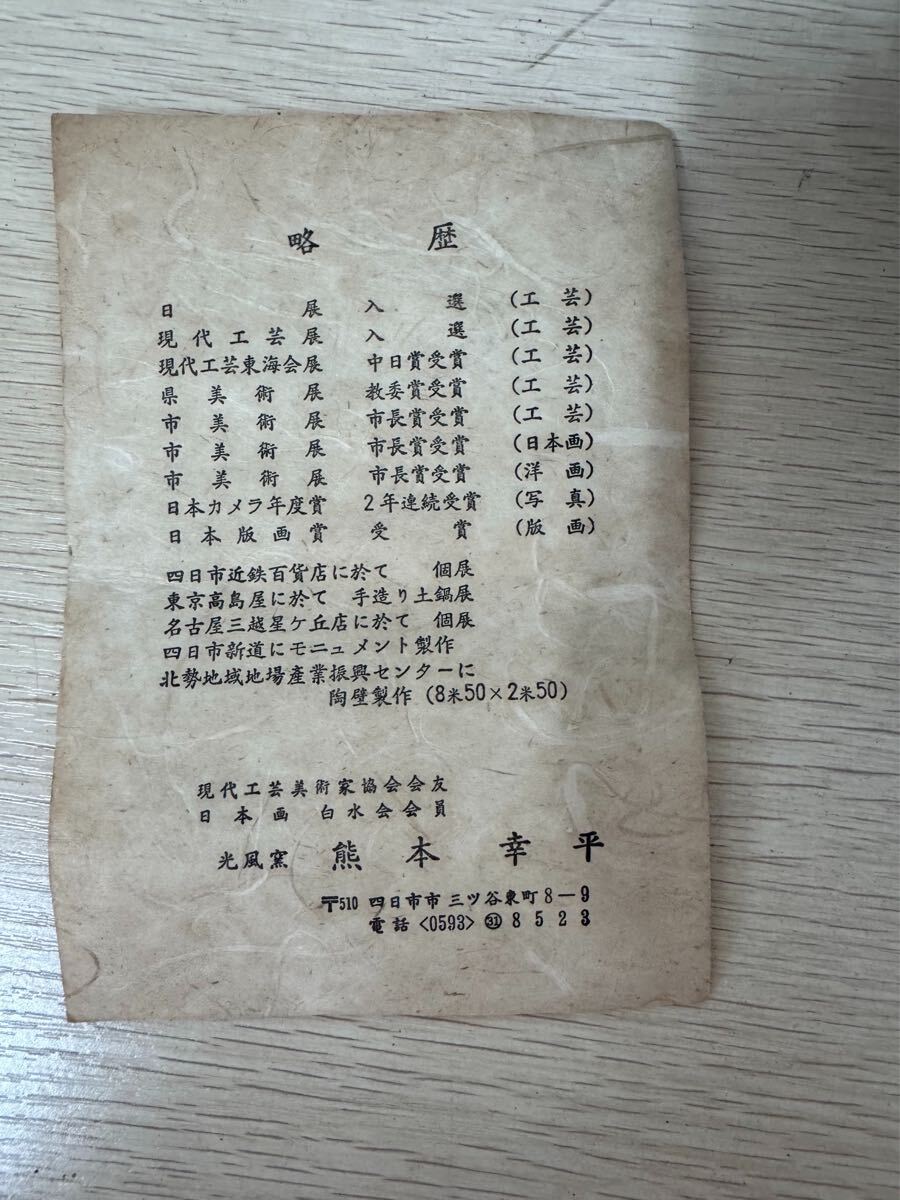 略歴
日展 入選 (工芸)
現代工芸展 入選 (工芸)
現代工芸東海会展 中日賞受賞 (工芸)
県美術展 教委賞受賞 (工芸)
市美術展 市長賞受賞 (工芸)
市美術展 市長賞受賞 (日本画)
市美術展 市長賞受賞 (洋画)
日本カメラ年度賞 2年連続受賞 (写真)
日本版画賞 受賞 (版画)
四日市近鉄百貨店に於て 個展
東京高島屋に於て 手造り土鍋展
名古屋三越星ケ丘店に於て 個展
四日市新道にモニュメント製作
北勢地域地場産業振興センターに
陶壁製作 (8米50×2米50)
現代工芸美術家協会会友
日本画 白水会会員
光風窯 熊本幸平
〒510 四日市市三ツ谷東町8—9
電話〈0593〉㉛8523